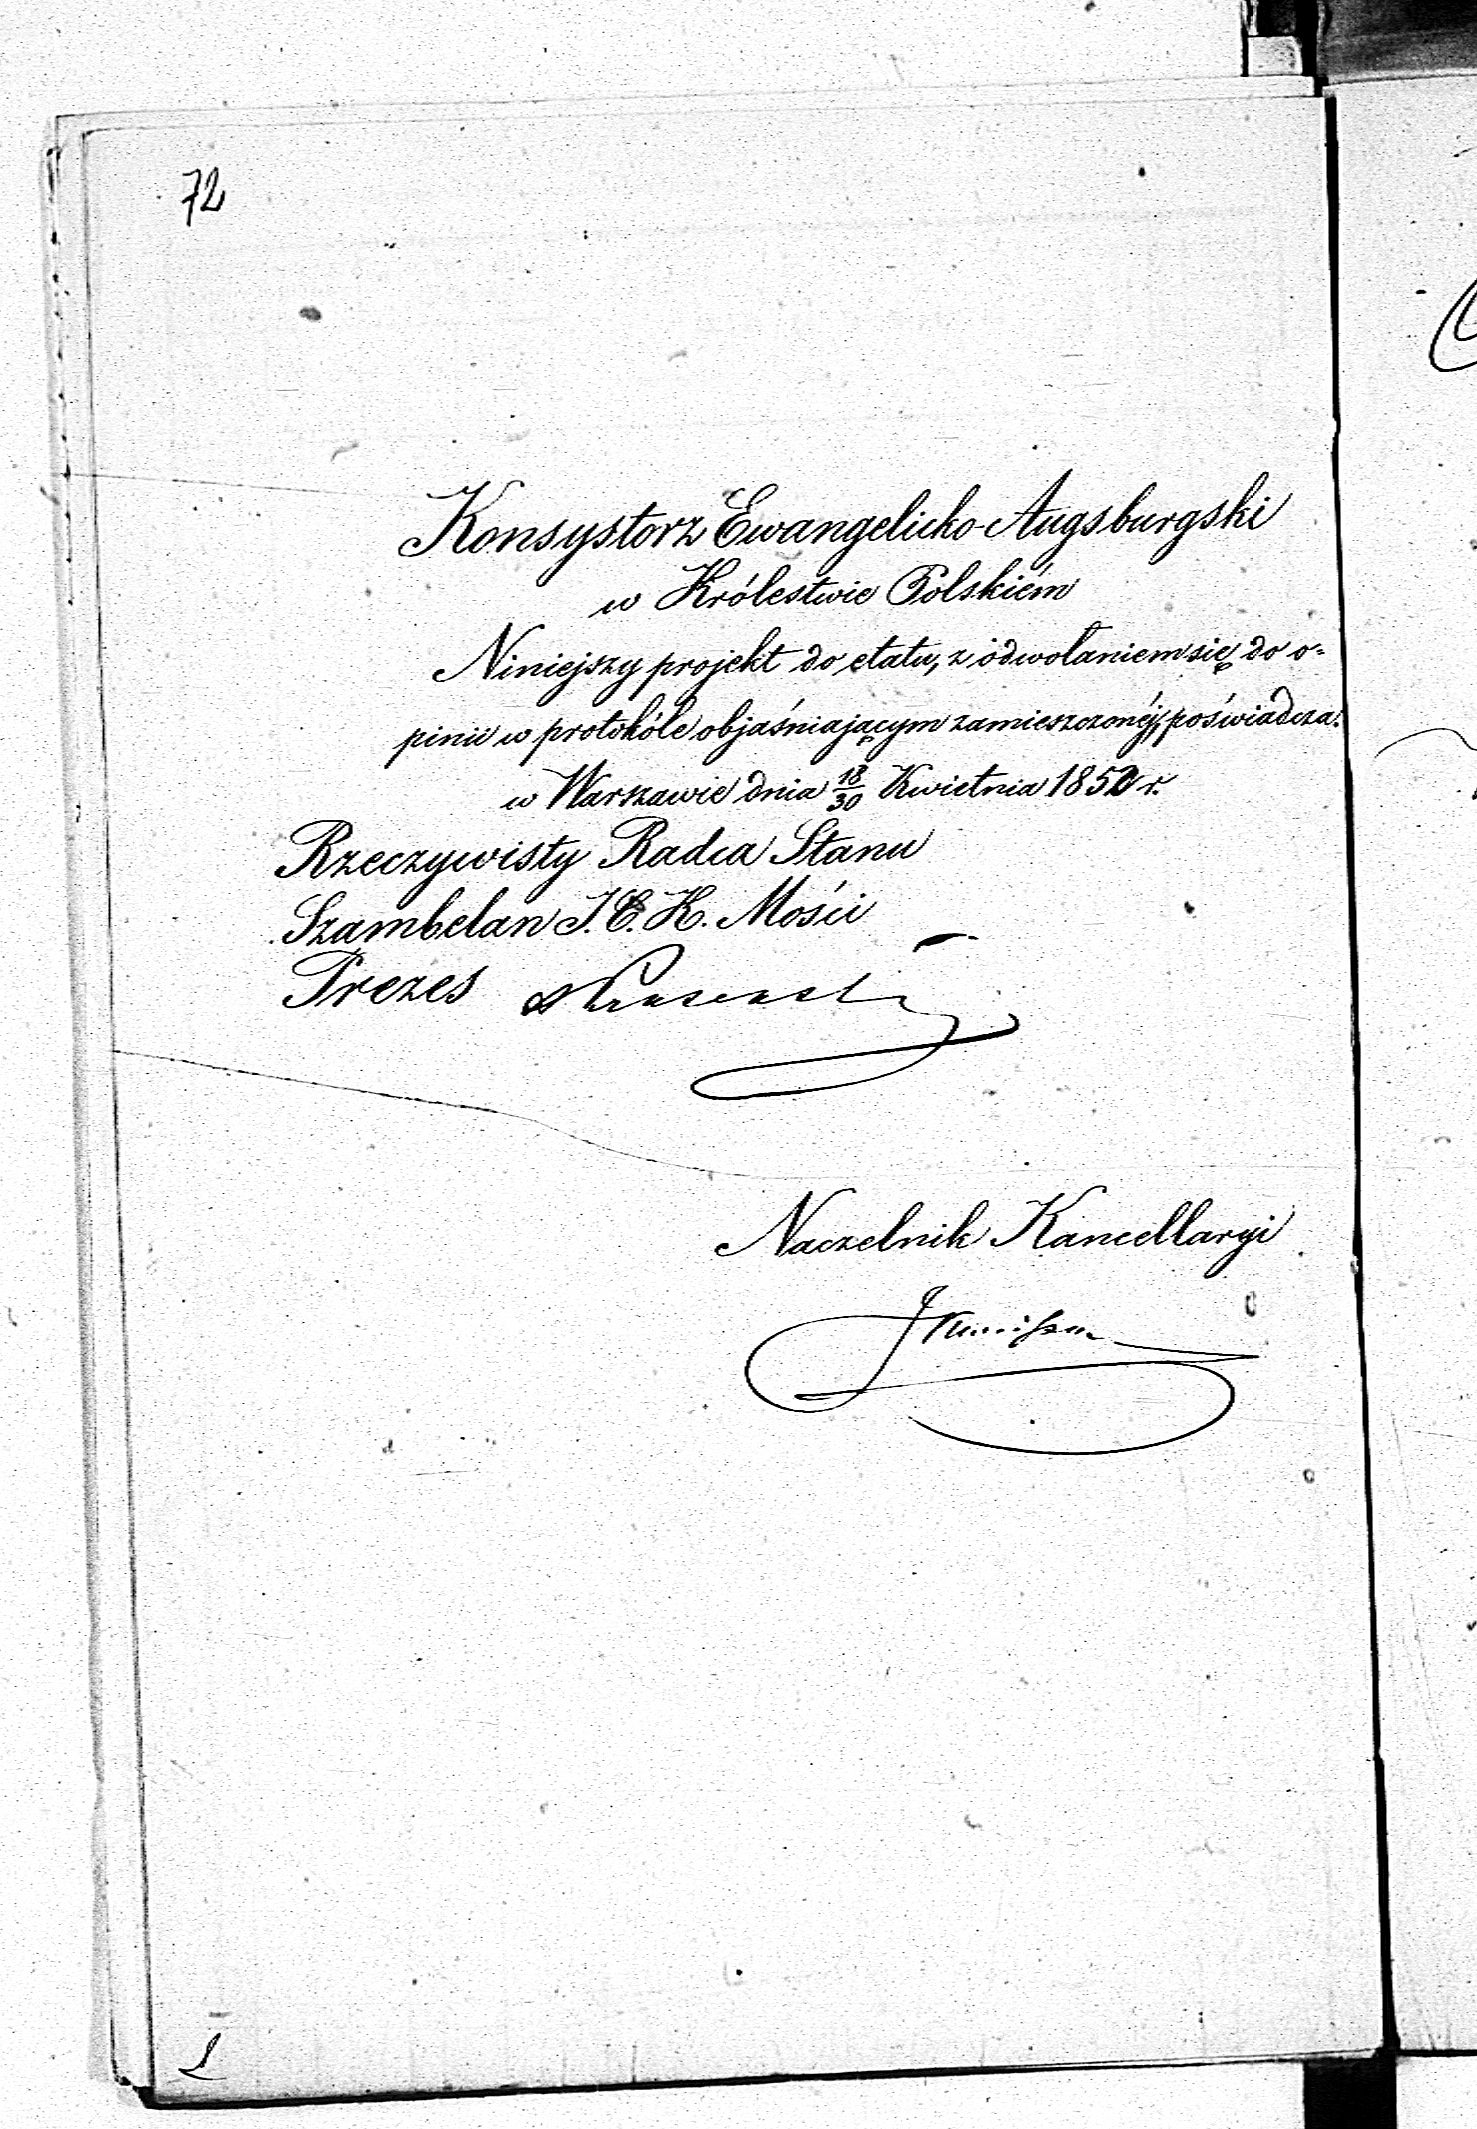 72
Konsystorz Ewangelicko-Augsburgski
w Królestwie Polskiém
Niniejszy projekt do etatu, z odwołaniem się do o-
pinii w protokóle objaśniającym zamieszczonéj, poświadcza.
w Warszawie dnia 18/30 Kwietnia 1852 r.
Rzeczywisty Radca Stanu
Szambelan J. C. K. Mości
Prezes
Naczelnik Kancellaryi